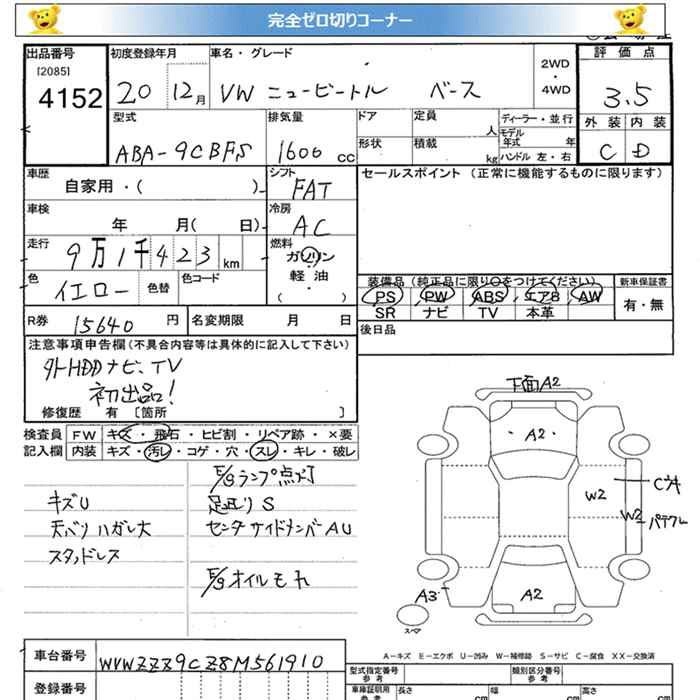 完全ゼロ切りコーナー
出品番号 初度登録年月 車名・グレード 2WD・4WD 評価点
[2085]
4152 20 12月 VW ニュービートル ベース 3.5
型式 排気量 ドア 定員 人 ディーラー・並行 外装 内装
モデル年式 年
ABA-9CBFS 1600 cc 形状 積載 kg ハンドル 左・右 C D
車歴 シフト セールスポイント (正常に機能するものに限ります)
自家用・( ) FAT
車検 冷房
年 月( 日) AC
走行 燃料
9万1千423 km ガソリン
色 色替 色コード 軽・油 装備品(純正品に限り○をつけてください) 新車保証書
イエロー ( ) PS PW ABS エアB AW 有・無
SR ナビ TV 本革
R券 15640 円 名変期限 月 日 後日品
注意事項申告欄(不具合内容等は具体的に記入して下さい)
外HDDナビ、TV
初出品!
修復歴 有 [箇所 ]
検査員 FW キズ・飛石・ヒビ割・リペア跡・×要
記入欄 内装 キズ・汚レ・コゲ・穴・スレ・キレ・破レ
E/gランプ点灯
キズU 足廻りS
天ベリハガレ大 センタサイドメンバAU
スタッドレス
E/gオイルモれ
下面A2
A2
W2
W2
パテクレ
A3
A2
スペア
A-キズ E-エクボ U-凹み W-補修跡 S-サビ C-腐食 XX-交換済
車台番号 WVWZZZ9CZ8M561910
型式指定番号 参考 類別区分番号 参考
登録番号 車庫証明用 参考 長さ cm 幅 cm 高さ cm